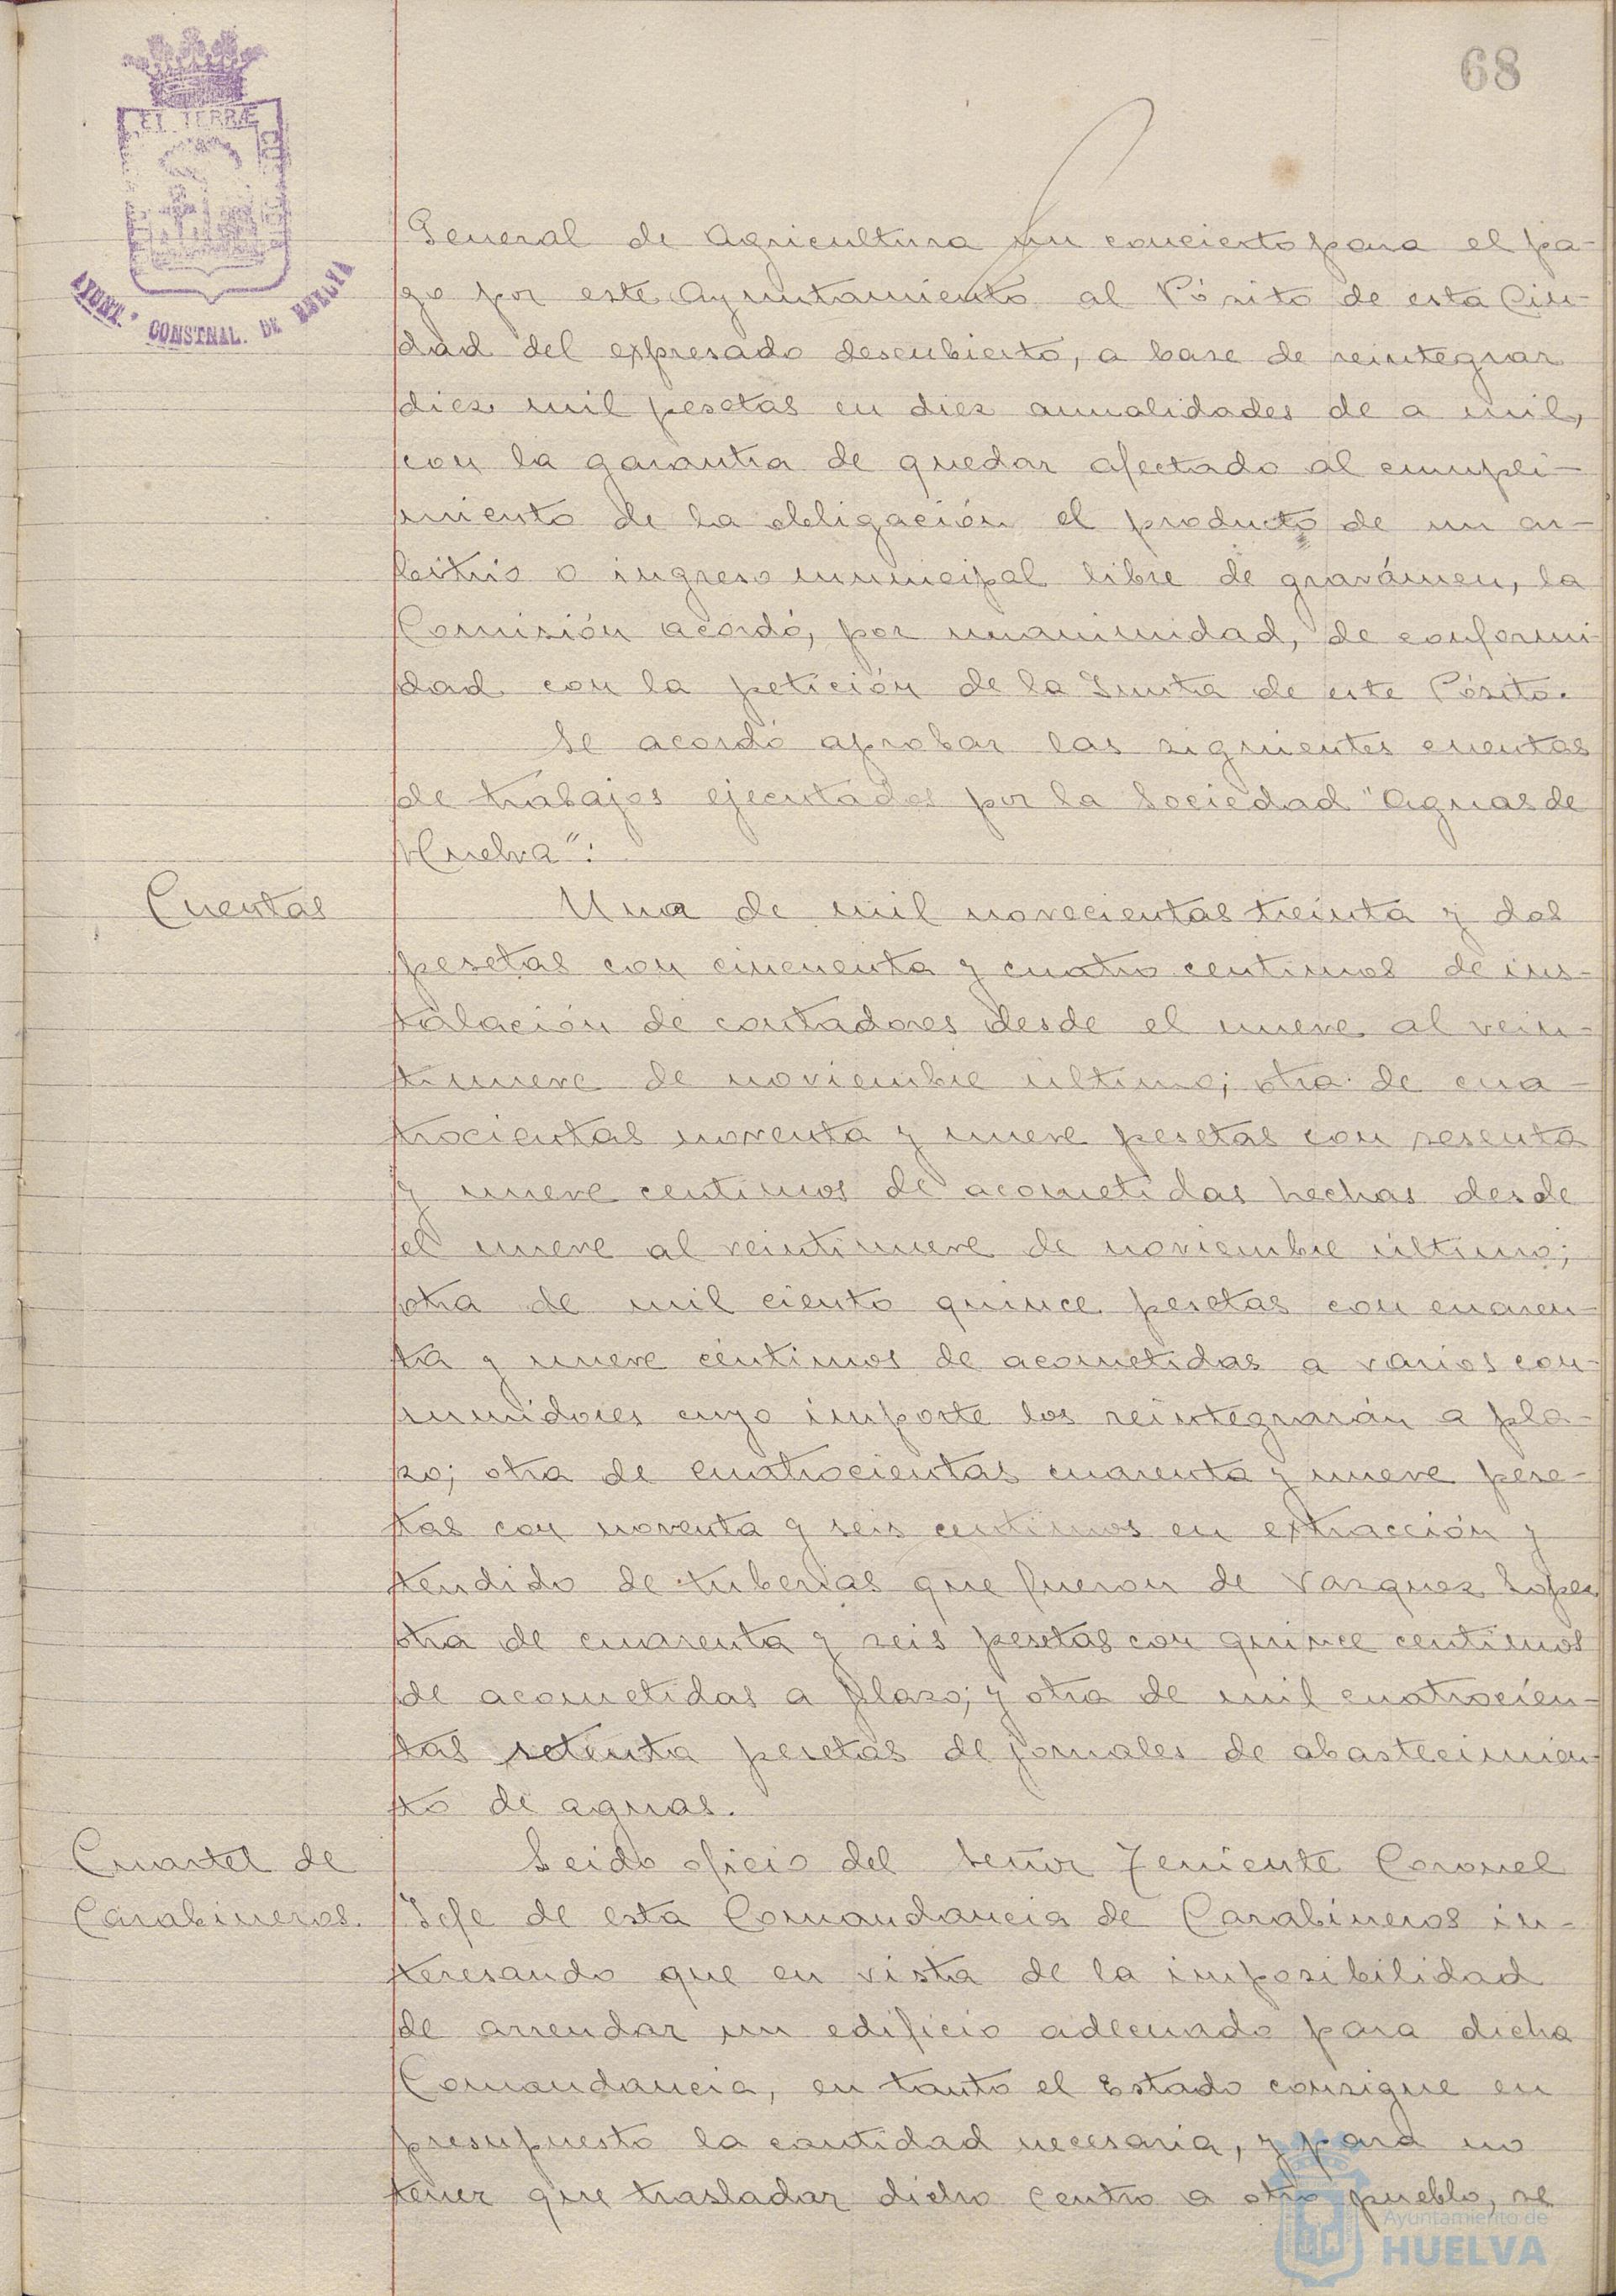 68
ET TERRÆ
AYUNT.º CONSTNAL. DE HUELVA
General de Agricultura un concierto para el pa-
go por este Ayuntamiento al Pósito de esta Ciu-
dad del expresado descubierto, a base de reintegrar
diez mil pesetas en diez anualidades de a mil,
con la garantia de quedar afectado al cumpli-
miento de la obligación el producto de un ar-
bitrio o ingreso municipal libre de gravámen, la
Comisión acordó, por unanimidad, de conformi-
dad con la petición de la Junta de este Pósito.
Se acordó aprobar las siguientes cuentas
de trabajos ejecutados por la Sociedad "Aguas de
Huelva":
Cuentas
Una de mil novecientas treinta y dos
pesetas con cincuenta y cuatro centimos de ins-
talación de contadores desde el nueve al vein-
tinueve de noviembre último; otra de cua-
trocientas noventa y nueve pesetas con sesenta
y nueve centimos de acometidas hechas desde
el nueve al veintinueve de noviembre último;
otra de mil ciento quince pesetas con cuaren-
ta y nueve céntimos de acometidas a varios con-
sumidores cuyo importe los reintegrarán a pla-
zo; otra de cuatrocientas cuarenta y nueve pese-
tas con noventa y seis centimos en extracción y
tendido de tuberias que fueron de Vazquez Lopez
otra de cuarenta y seis pesetas con quince centimos
de acometidas a plazo; y otra de mil cuatrocien-
tas setenta pesetas de jornales de abastecimien-
to de aguas.
Cuartel de
Carabineros.
Leido oficio del Señor Teniente Coronel
Jefe de esta Comandancia de Carabineros in-
teresando que en vista de la imposibilidad
de arrendar un edificio adecuado para dicha
Comandancia, en tanto el Estado consigue en
presupuesto la cantidad necesaria, y para no
tener que trasladar dicho Centro a otro pueblo, se
Ayuntamiento de
HUELVA